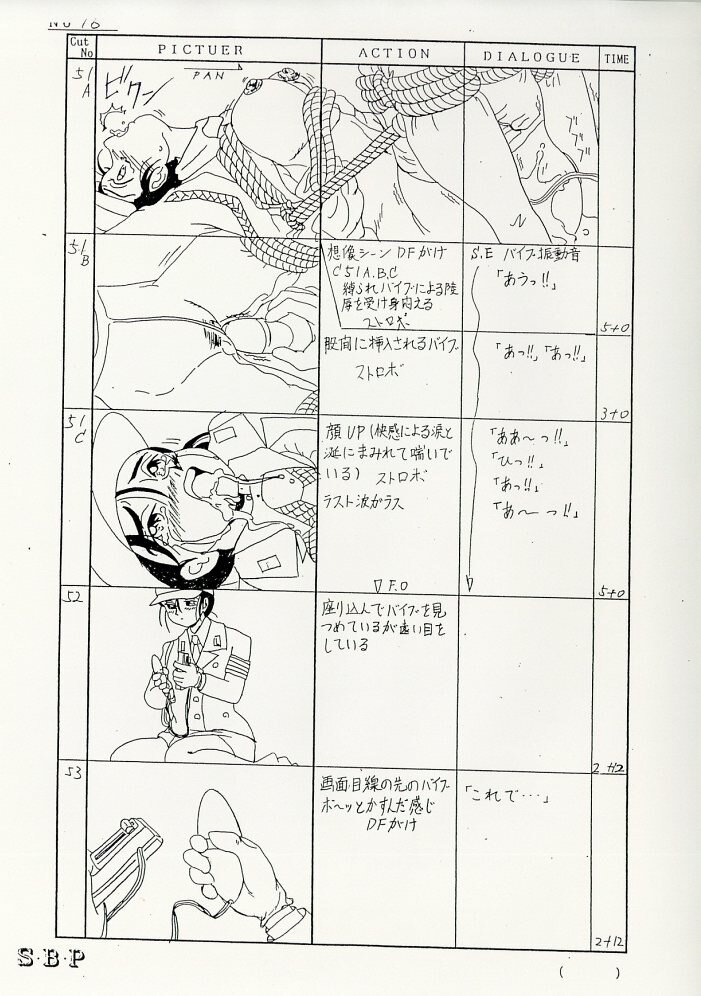 No 18
Cut No
PICTUER
ACTION
DIALOGUE
TIME
51 A
PAN
ビクン
ブブブ
想像シーン DFがけ
C51A.B.C
縛られバイブによる陵
辱を受け身悶える
ストロボ
S.E バイブ振動音
「あうっ!!」
5+0
51 B
股間に挿入されるバイブ
ストロボ
「あっ!!」「あっ!!」
3+0
51 C
顔UP(快感による涙と
涎にまみれて喘いで
いる) ストロボ
ラスト波ガラス
▽F.O
「ああ〜っ!!」
「ひっ!!」
「あっ!!」
「あ〜っ!!」
5+0
52
座り込んでバイブを見
つめているが遠い目を
している
2+12
53
画面目線の先のバイブ
ボ〜ッとかすんだ感じ
DFがけ
「これで…」
2+12
S·B·P
( )